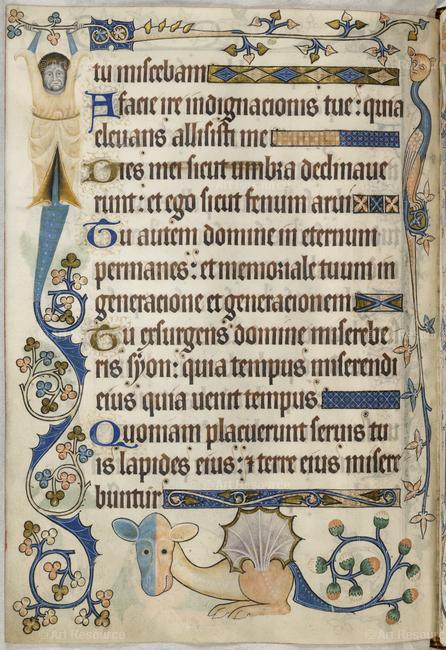 tu miscebam
A facie ire indignacionis tue: quia
elevans allisisti me
Dies mei sicut umbra declinave
runt: et ego sicut fenum arui
Tu autem domine in eternum
permanes: et memoriale tuum in
generacione et generacionem
Tu exsurgens domine miserebe
ris syon: quia tempus miserendi
eius quia venit tempus.
Quoniam placuerunt servis tu
is lapides eius: ⁊ terre eius misere
buntur
© Art Resource
© Art Resource